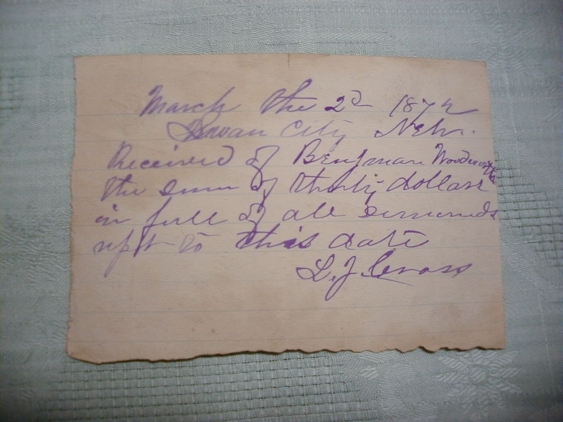 March the 2d 187
City Neb.
Received of Benjman
the sum of thirty dollars
in full of all demands
upt to this date
L. J. Cross